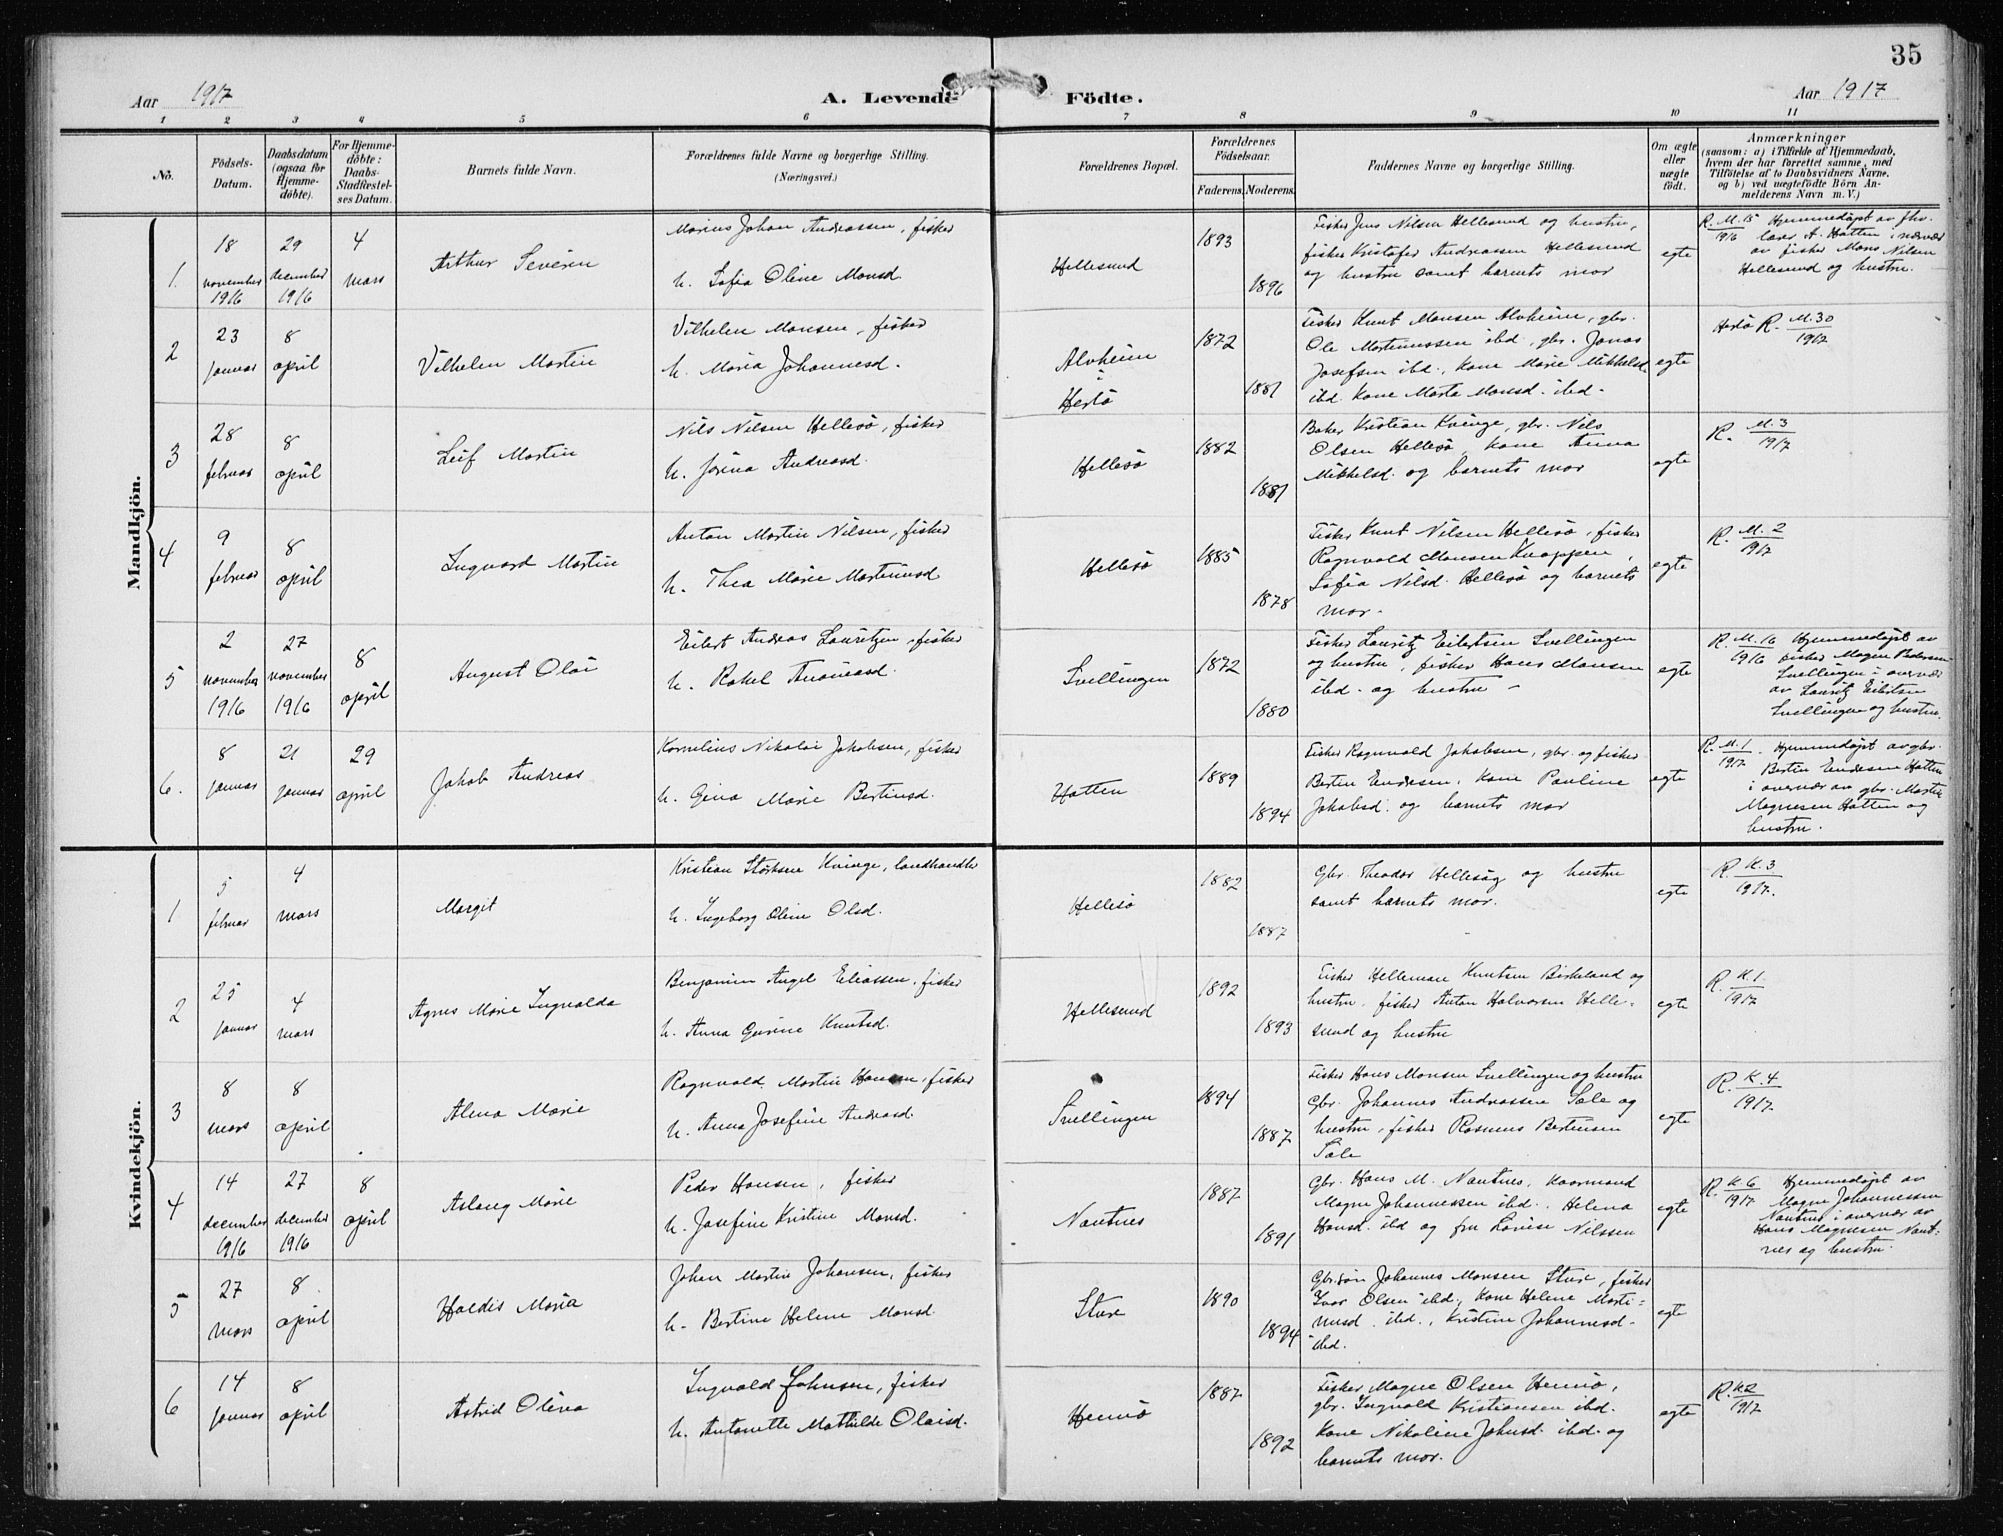 35
Aar 1917
A. Levende Födte.
Aar 1917
1 2 3 4 5 6 7 8 9 10 11
No.
Födsels-
Datum.
Daabsdatum
(ogsaa for
Hjemme-
döbte).
For Hjemme-
döbte:
Daabs-
Stadfæstel-
ses Datum.
Barnets fulde Navn.
Forældrenes fulde Navne og borgerlige Stilling.
(Næringsvei.)
Forældrenes Bopæl.
Forældrenes
Födselsaar.
Faderens. Moderens.
Faddernes Navne og borgerlige Stilling.
Om ægte
eller
uægte
födt.
Anmærkninger
(saasom: a) i Tilfælde af Hjemmedaab,
hvem der har forrettet samme, med
Tilföielse af to Daabsvidners Navne,
og b) ved uægtefödte Börn An-
melderens Navn m. V.)
Mandkjön.
1.
18
november
1916
29
december
1916
4
mars
Arthur Severin
Marius Johan Andreassen, fisker
h. Sofia Oline Monsd.
Hellesund
1893
1896
Fisker Jens Nilsen Hellesund og hustru,
fisker Kristofer Andreassen Hellesund
og hustru samt barnets mor
egte
R. M. 15
1916
Hjemmedøpt av fhv.
lærer A. Hatten i nærvær
av fisker Mons Nilsen
Hellesund og hustru.
2
23
januar
8
april
Vilhelm Martin
Vilhelm Monsen, fisker
h. Maria Johannesd.
Alvheim
i
Herlö
1872
1881
Fisker Knut Monsen Alvheim, gbr.
Ole Martinussen ibd, gbr. Jonas
Josefsen ibd, kone Marie Mikkelsd
ibd. kone Marta Monsd. ibd.
egte
Herlö R. M. 30
1917
3
28
februar
8
april
Leif Martin
Nils Nilsen Hellesö, fisker
h. Jorina Andreasd.
Hellesö
1882
1881
Baker Kristian Kvinge, gbr. Nils
Olsen Hellesö, kone Anna
Mikkelsd. og barnets mor
egte
R. M. 3
1917
4
9
februar
8
april
Ingvard Martin
Anton Martin Nilsen, fisker
h. Thea Marie Martinusd
Hellesö
1885
1878
Fisker Knut Nilsen Hellesö, fisker
Ragnvald Monsen Knappen,
Sofia Nilsd. Hellesö og barnets
mor.
egte
R. M. 2
1917
5
2
november
1916
27
november
1916
8
april
August Olai
Eilert Andreas Lauritzen, fisker
h. Rakel
Svellingen
1872
1880
Fisker Lauritz Eilertsen Svellingen
og hustru, fisker Hans Monsen
ibd. og hustru
egte
R. M. 16
1916
Hjemmedøpt av
fisker Magne Pedersen
Svellingen i overvær
av Lauritz Eilertsen
Svellingen og hustru.
6.
8
januar
21
januar
29
april
Jakob Andreas
Kornelius Nikolai Jakobsen, fisker
h. Gina Marie Bertinsd.
Hatten
1889
1894
Fisker Ragnvald Jakobsen, gbr. og fisker
Bertin Endresen, kone Pauline
Jakobsd. og barnets mor
egte
R. M. 1
1917.
Hjemmedøpt av gbr.
Bertin Endresen Hatten
i overvær av gbr. Martin
Magnesen Hatten og
hustru.
Kvindekjön.
1
5
februar
4
mars
Margit
Kristian Störksen Kvinge, landhandler
h. Ingeborg Oline Olsd.
Hellesö
1882
1887
Gbr. Theodor Hellesög og hustru
samt barnets mor.
egte
R. K. 3
1917.
2
25
januar
4
mars
Agnes Marie Ingvalda
Benjamin Angel Eliassen, fisker
h. Anna Gurine Knutsd.
Hellesund
1892
1893
Fisker Knutsen Birkeland og
hustru, fisker Anton Halvorsen Helle-
sund og hustru
egte
R. K. 1
1917
3
8
mars
8
april
Alma Marie
Ragnvald Martin Hansen, fisker
h. Anna Josefine Andreasd.
Svellingen
1894
1887
Fisker Hans Monsen Svellingen og hustru
Gbr. Johannes Andreassen Sæle og
hustru, fisker Rasmus Bertinsen
Sæle
egte
R. K. 4
1917.
4
14
december
1916
27
december
1916
8
april
Aslaug Marie
Peder Hansen, fisker
h. Josefine Kristine Monsd.
Nautnes
1887
1891
Gbr. Hans M. Nautnes, kaarmand
Magne Johannessen ibd., Helena
Hansd. ibd og fru Lovise Nilssen
egte
R. K. 6
1917
Hjemmedøpt av
Magne Johannessen
Nautnes i overvær av
Hans Magnesen Naut-
nes og hustru.
5
27
mars
8
april
Haldis Maria
Johan Martin Johansen, fisker
h. Bertine Helene Monsd
Sture
1890
1894
Gbr.søn Johannes Monsen Sture, fisker
Ivar Olsen ibd, kone Helene Marti-
nusd. ibd., Kristine Johannesd.
ibd.
egte
6
14
januar
8
april
Astrid Olena
Ingvald Johnsen, fisker
h. Antonette Mathilde Olaisd.
Hernö
1887
1892
Fisker Magne Olsen Hernö,
gbr. Ingvald Kristiansen ibd.
kone Nikoline Johnsd. ibd. og
barnets mor.
egte
R. K 2
1917